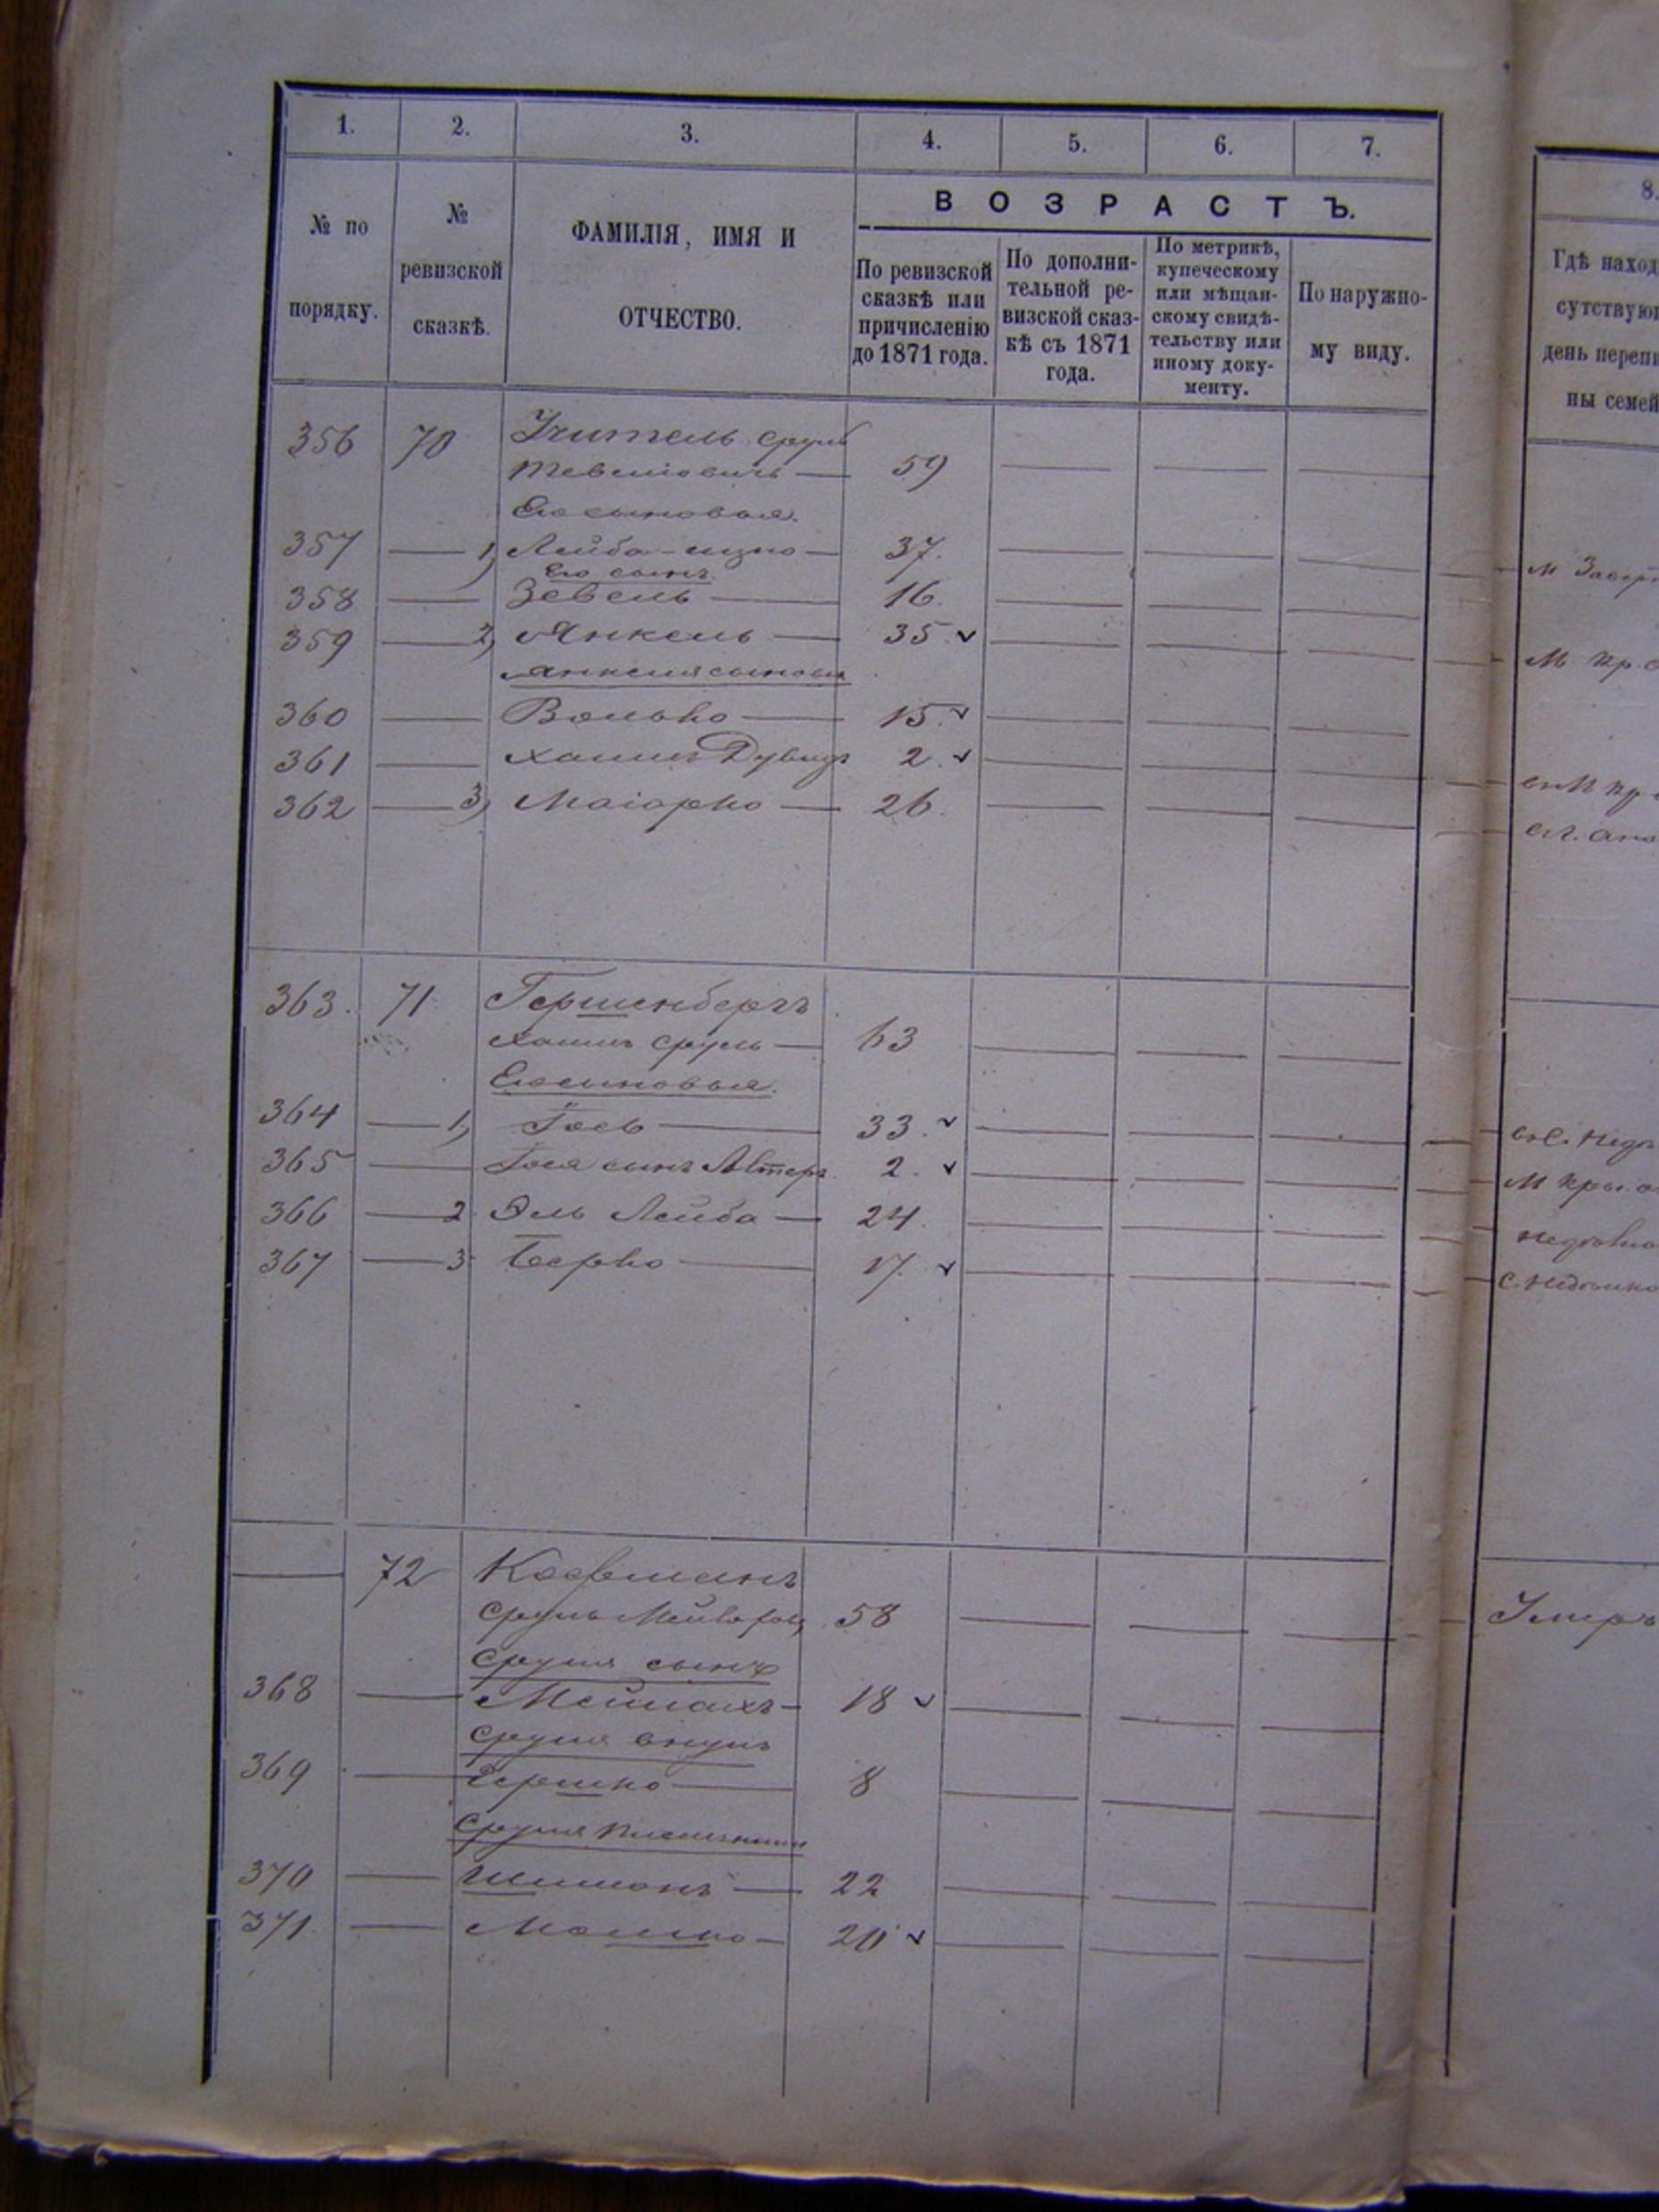 1. 2. 3. 4. 5. 6. 7.
№ по порядку.
№ ревизской сказкѣ.
ФАМИЛІЯ, ИМЯ И ОТЧЕСТВО.
ВОЗРАСТЪ.
По ревизской сказкѣ или причисленію до 1871 года.
По дополни-
тельной ре-
визской сказ-
кѣ съ 1871
года.
По метрикѣ,
купеческому
или мѣщан-
скому свидѣ-
тельству или
иному доку-
менту.
По наружно-
му виду.
356 70 Учитель Сруль
Тевелiовичъ — 59
Его сыновья.
357 — 1, Лейба-ицко — 37.
Его сынъ.
358 — Зевель — 16.
359 — 2, Янкель — 35.
Янкеля сыновья
360 — Волько — 15.
361 — Хаимъ Дувидъ 2.
362 — 3, Маіорко — 26.
363. 71 Гершенбергъ
Хаимъ Сруль — 63
Его сыновья.
364 — 1, Іось — 33.
365 — Іося сынъ Алтеръ 2.
366 — 2 Эль Лейба — 24.
367 — 3 Берко — 17.
— 72 Кофманъ
Сруль 58
Сруля сынъ
368 — — 18
Сруля внукъ
369 — Гершко — 8
Сруля племянники
370 — Шимонъ — 22
371. — Мошко — 20
8.
Гдѣ наход
сутствую
день переп
ны семей
м
м кр.
Умеръ